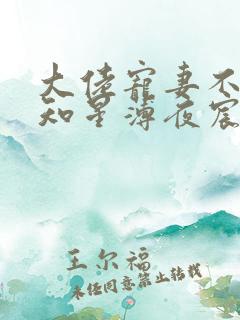 大佬宠妻不
知星薄夜宸
王尔福
未经同意禁止转载